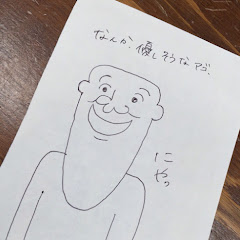 なんか、優しそうなアゴ。
にやっ